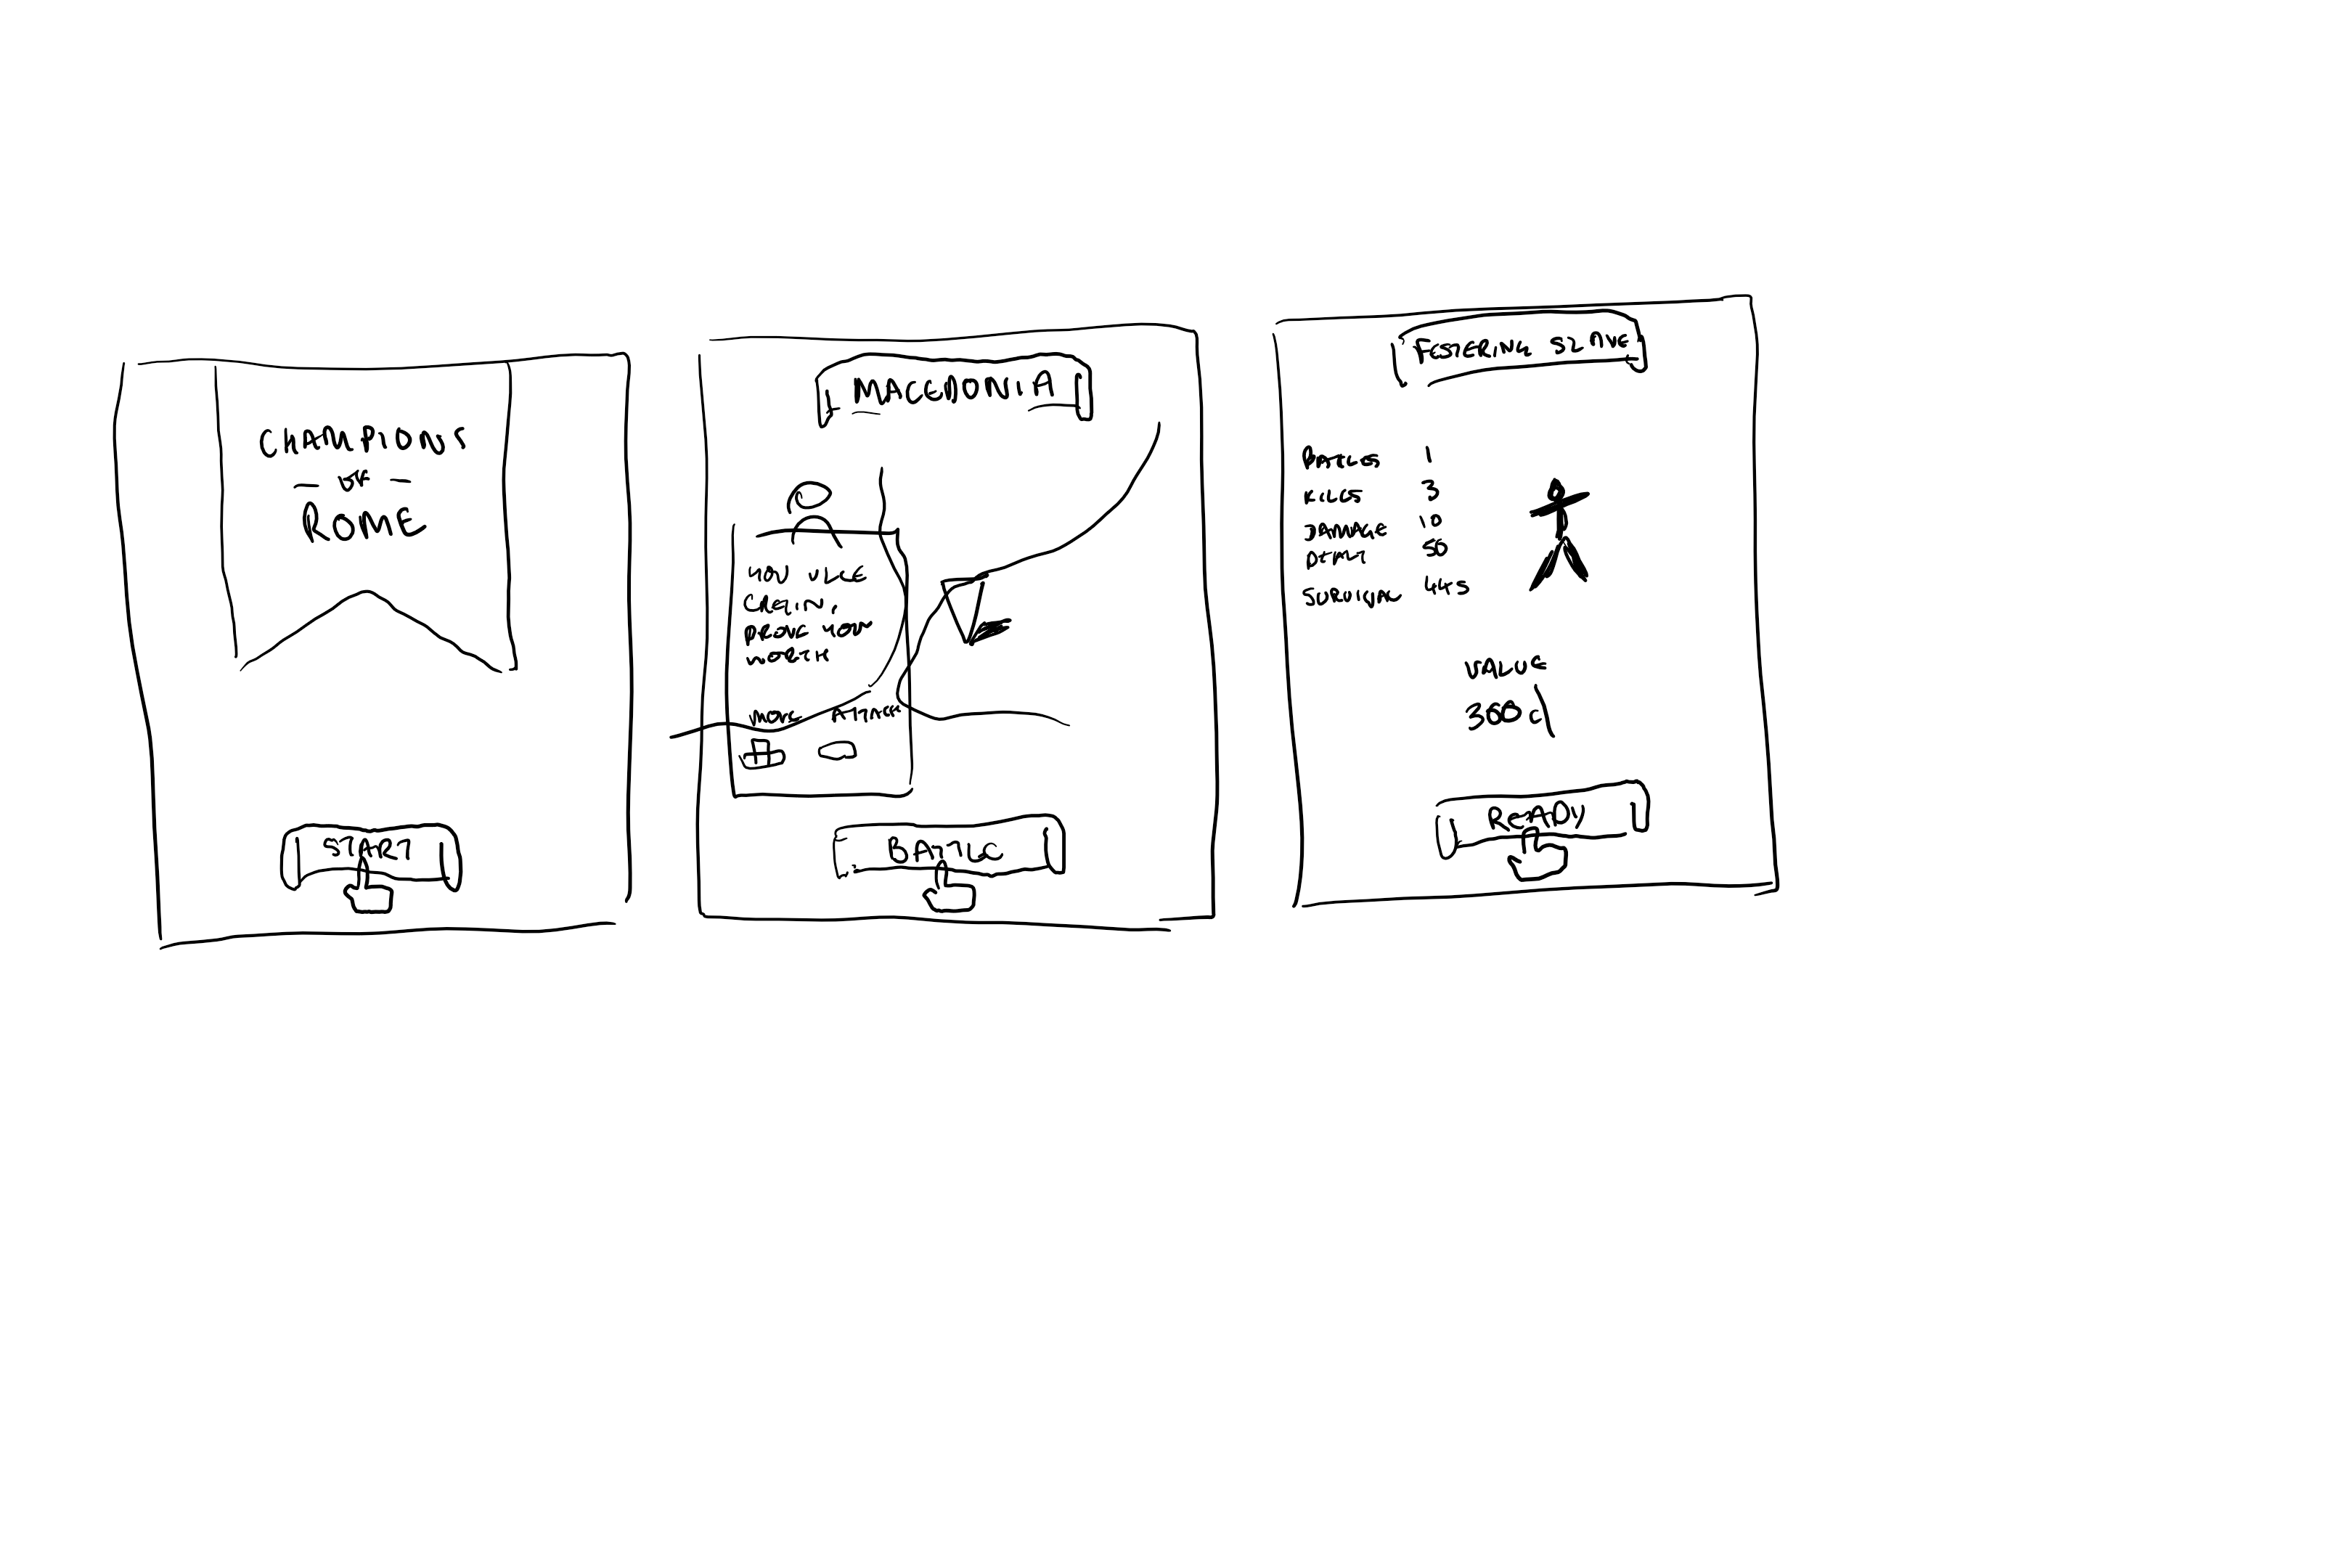 CHAMPIONS
— OF —
ROME
START
MACEDONIA
YOU VILE
CRETIN,
PROVE YOUR
WORTH
MOVE ATTACK
BATTLE
FESTERING SLAVE
BATTLES 1
KILLS 3
DAMAGE 10
DEALT 50
SURVIVAL 44S
VALUE
300c
READY